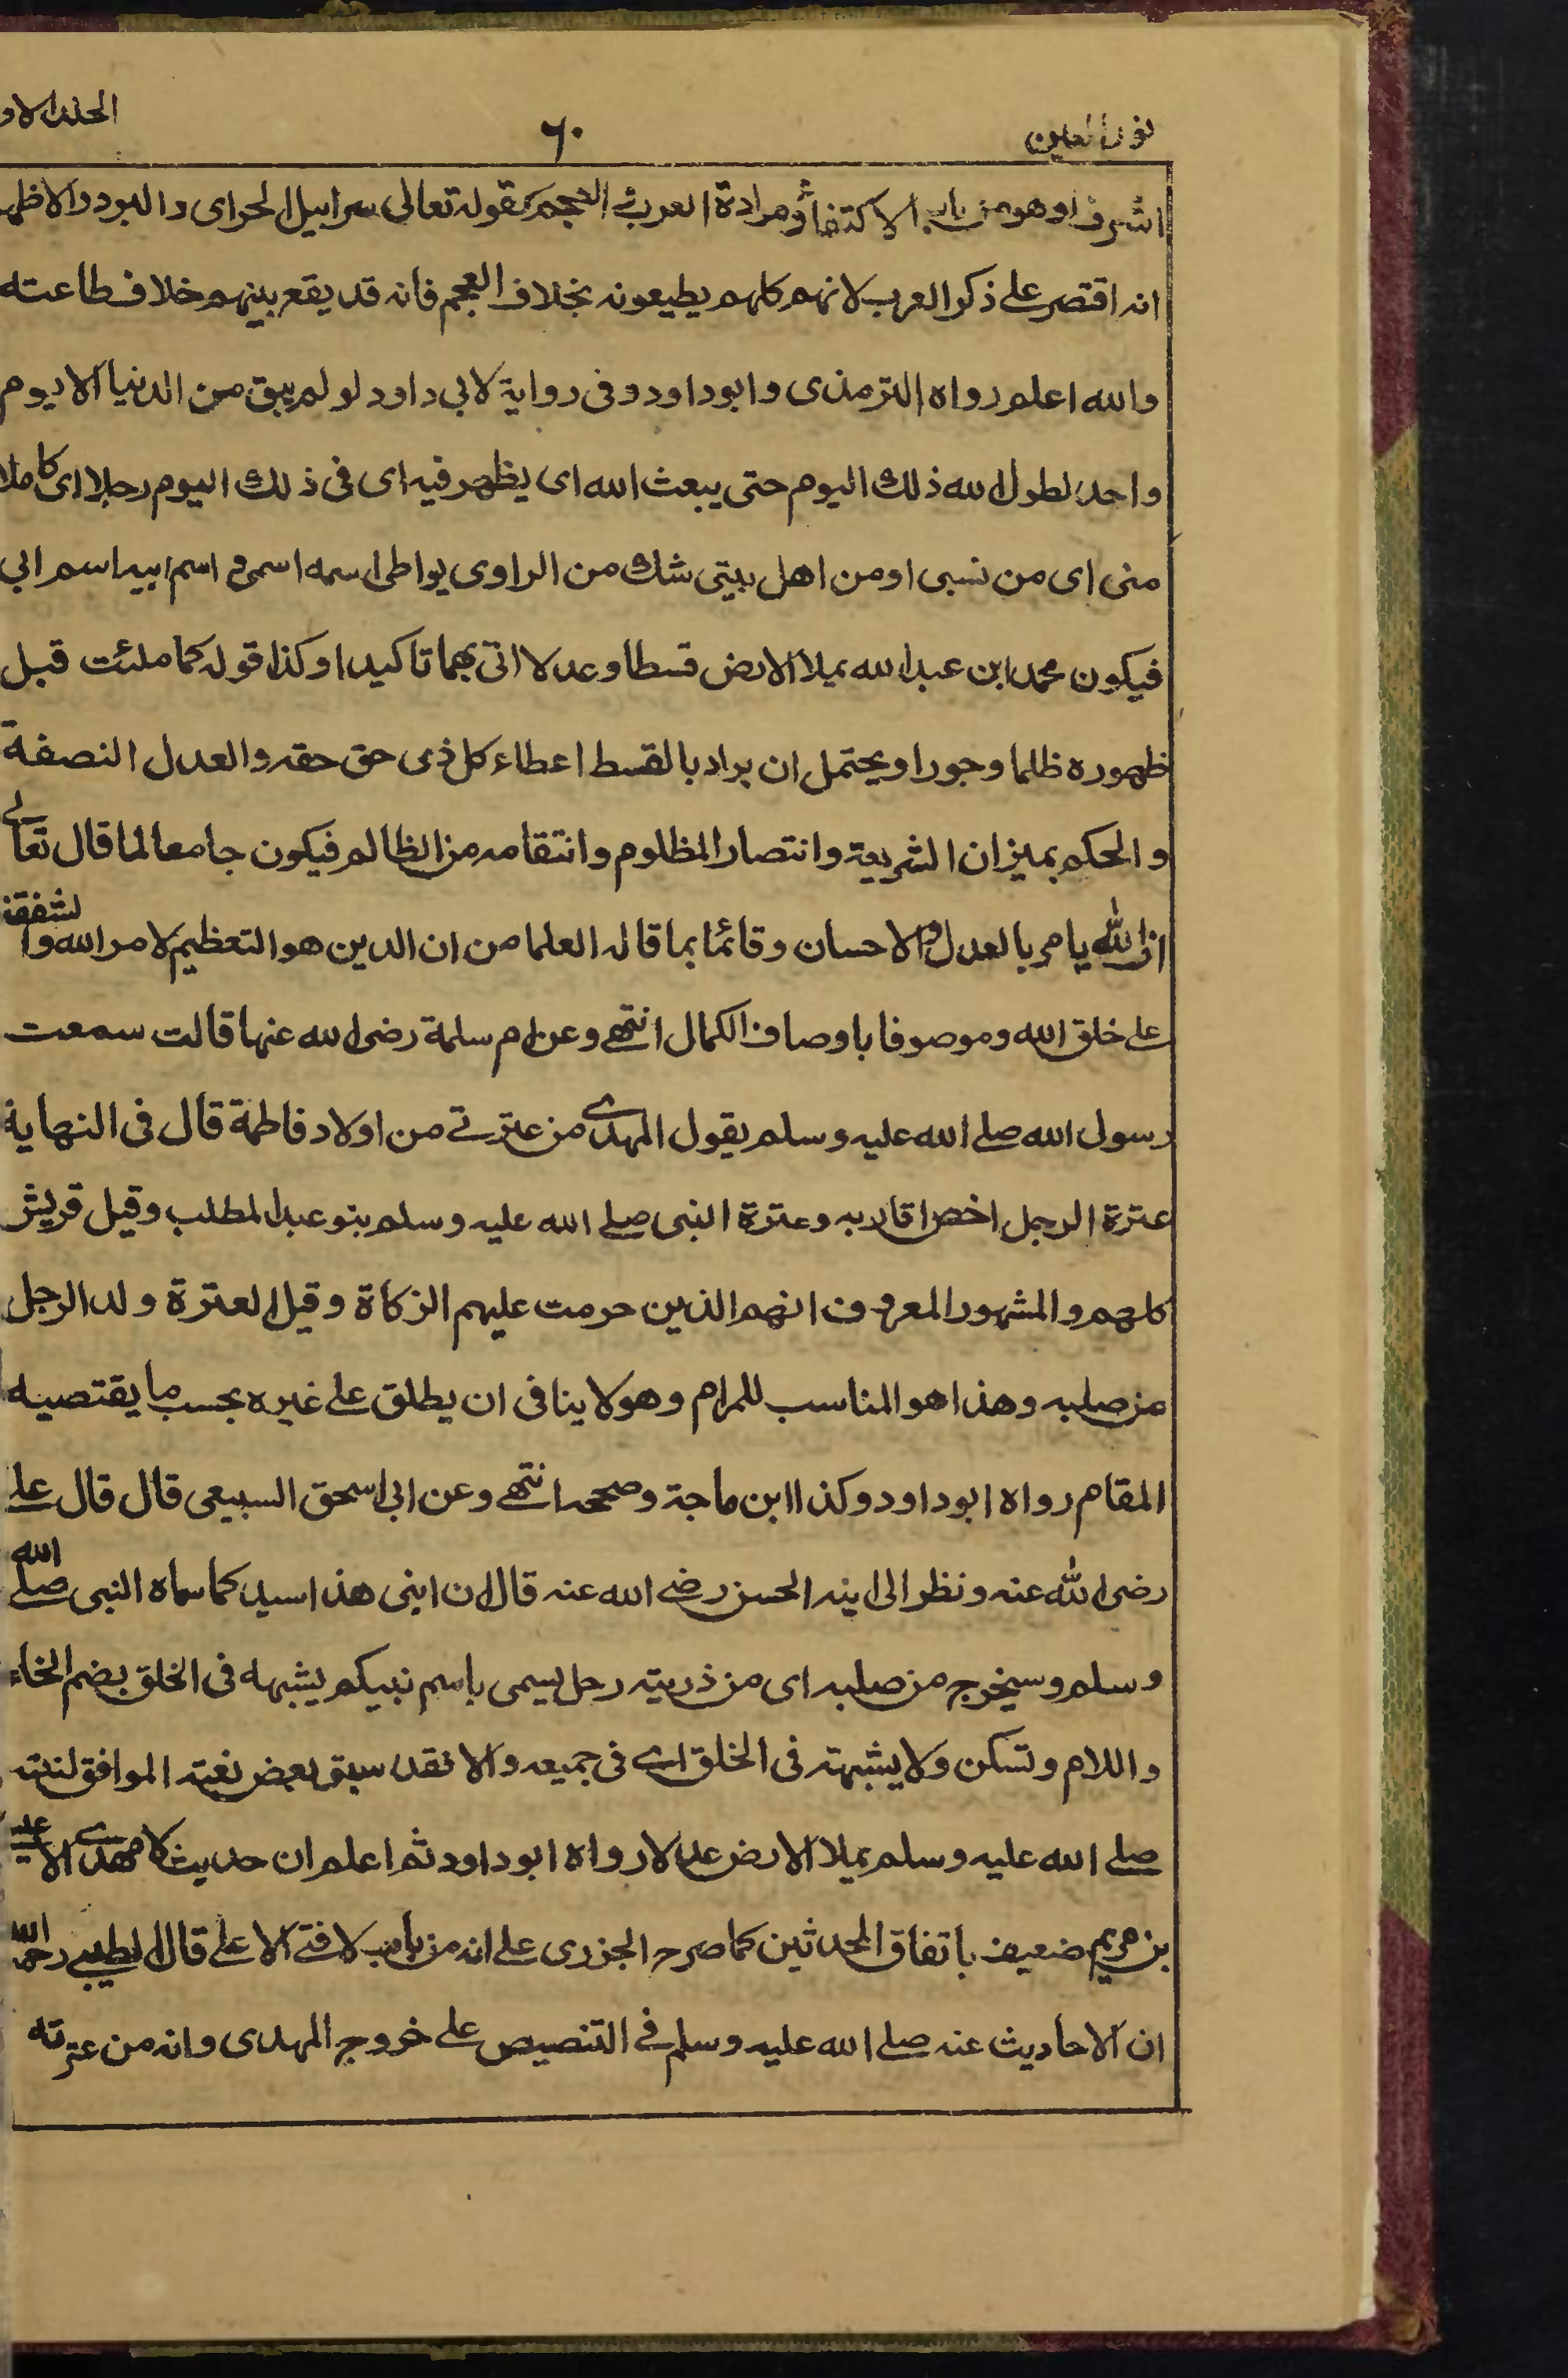 نور العين ٦٠ المجلد الاو
اشرف او هو من باب الاكتفاء ومرادة العرب والعجم كقوله تعالى سرابيل الحر اى والبرد والاظهر
انه اقتصر على ذكر العرب لانهم كلهم يطيعونه بخلاف العجم فانه قد يقع بينهم خلاف طاعته
والله اعلم رواه الترمذى وابو داود وفى رواية لابى داود لو لم يبق من الدنيا الا يوم
واحد لطول الله ذلك اليوم حتى يبعث الله اى يظهر فيه اى فى ذلك اليوم رجلا اى كاملا
منى اى من نسبى او من اهل بيتى شك من الراوى يواطى اسمه اسمى و اسم ابيه اسم ابى
فيكون محمد ابن عبد الله يملا الارض قسطا وعدلا اتى بهما تاكيدا وكذا قوله كما ملئت قبل
ظهوره ظلما وجورا ويحتمل ان يراد بالقسط اعطاء كل ذى حق حقه والعدل النصفة
والحكم بميزان الشريعة وانتصار المظلوم وانتقامه من الظالم فيكون جامعا لما قال تعالے
ان الله يامر بالعدل والاحسان وقائما بما قاله العلما من ان الدين هو التعظيم لامر الله والشفقة
على خلق الله وموصوفا باوصاف الكمال انتهے وعن ام سلمة رضى الله عنها قالت سمعت
رسول الله صلے الله عليه وسلم يقول المهدے من عترتے من اولاد فاطمة قال فى النهاية
عترة الرجل اخص اقاربه وعترة النبى صلے الله عليه وسلم بنو عبد المطلب وقيل قريش
كلهم والمشهور المعروف انهم الذين حرمت عليهم الزكاة وقيل العترة ولد الرجل
من صلبه وهذا هو المناسب للمرام وهو لا ينافى ان يطلق على غيره بحسب ما يقتصيه
المقام رواه ابو داود وكذا ابن ماجة وصححه انتهے وعن ابى اسحق السبيعى قال قال على
رضى الله عنه ونظر الى ابنه الحسن رضے الله عنه قال ان ابنى هذا سيد كما سماه النبى صلے الله
وسلم وسيخرج من صلبه اى من ذريته رجل يسمى باسم نبيكم يشبهه فى الخلق بضم الخاء
واللام وتسكن ولا يشبهه فى الخلق اے فى جميعه والا فقد سبق بعض نعته الموافق لنعته
صلے الله عليه وسلم يملا الارض عدلا رواه ابو داود ثم اعلم ان حديث لا مهدے الا عيسے
بن مريم ضعيف باتفاق المحدثين كما صرح الجزرى على انه من باب لا فتے الا على قال الطيبے رحمه الله
ان الاحاديث عنه صلے الله عليه وسلم فے التنصيص على خروج المهدى وانه من عترته